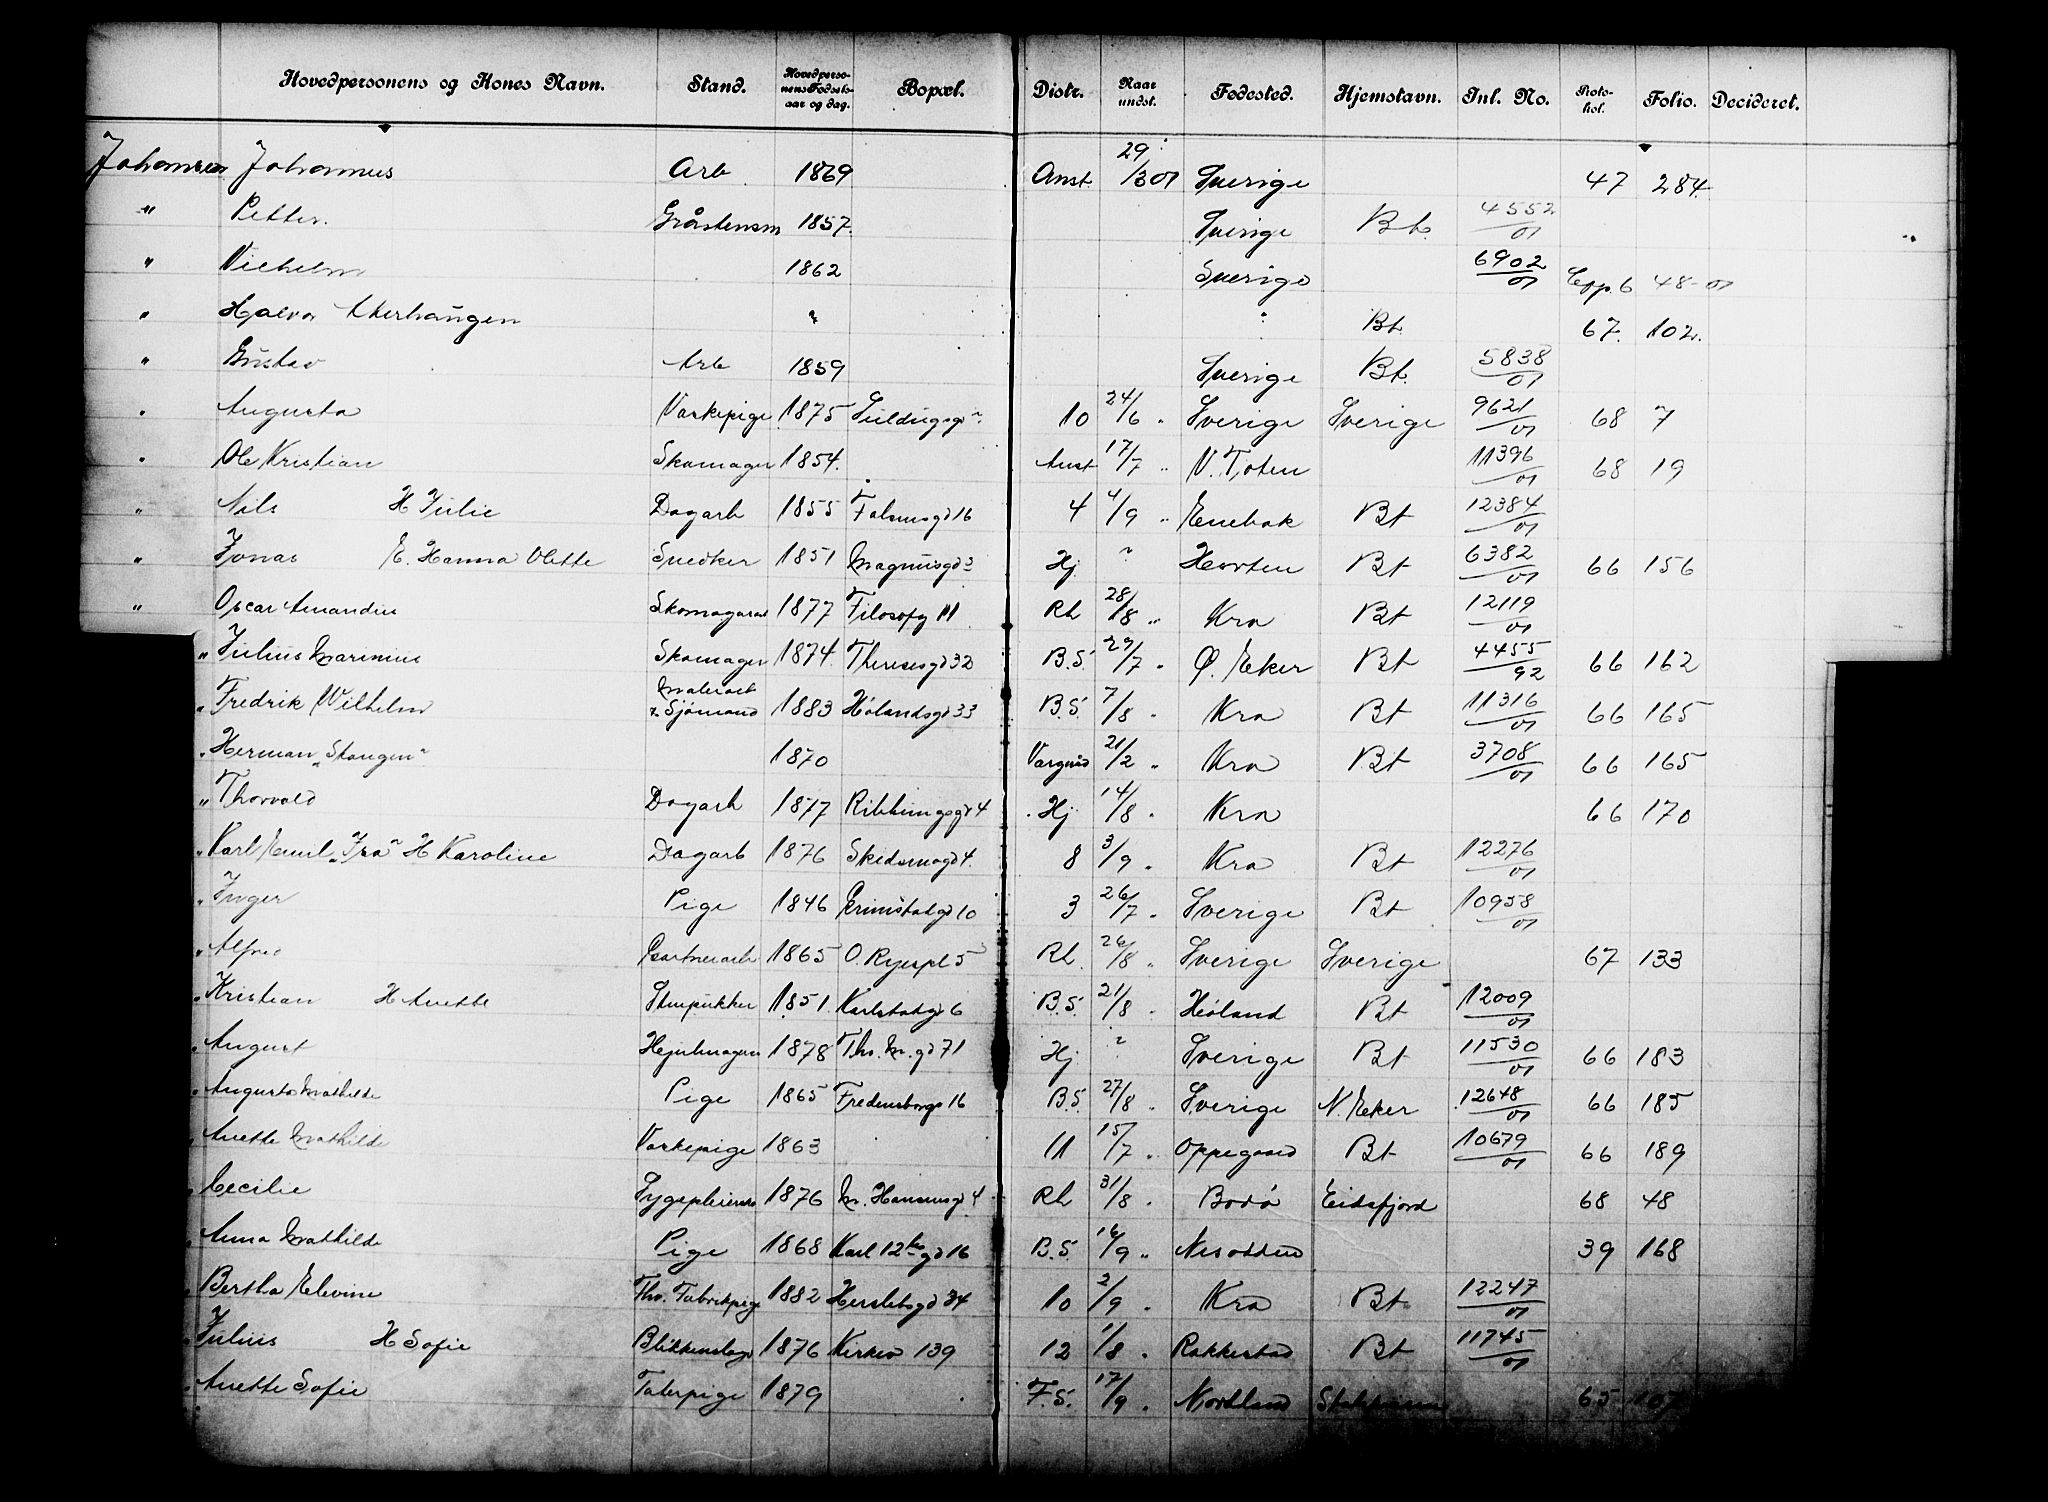 Hovedpersonens og Kones Navn. Stand. Hovedperso-nens Fødsels-aar og dag. Bopæl. Distr. Naar undst. Fødested. Hjemstavn. Inl. No. Proto-kol. Folio. Decideret.
Johansen Johannus Arb 1869 Anst. 29/3 01 Sverige 47 284.
" Petter. Gråstensm 1857. Sverige Bt. 4552/01
" Vilhelm 1862 Sverige 6902/01 Copp. 6 48-01
" Hjalvor " " Bt. 67. 102.
" Gustav Arb 1859 Sverige Bt. 5838/01
" Augusta Vaskepige 1875 10 24/6 " Sverige Sverige 9621/01 68 7
" Ole Kristian Skomager 1854. Anst 17/7 " V. Toten 11396/01 68 19
" Nils H Julie Dagarb 1855 Falsensgd 16 4 4/9 " Enebak Bt 12384/01
" Jonas E. Hanna Olette Snedker 1851 Magnusgd 3 Hj ? Horten Bt 6382/01 66 156
" Oscar Amandus Skomagerar 1877 Filosofg 11 Rh 28/8 " Kra Bt 12119/01
" Julius Marinius Skomager 1874. Theresesgd 32 B.S. 29/7 " Ø. Eker Bt 4455/92 66 162
" Fredrik Wilhelm Malerarb & Sjømand 1883 Hølandsgd 33 B.S. 7/8 " Kra Bt 11316/01 66 165
" Herman "Skougen" 1870 Vargnæs 21/2 " Kra Bt 3708/01 66 165
" Thorvald Dagarb 1877 Ribbungsgd 4 Hj 14/8 " Kra 66 170
" Karl Emil "Fra" H Karoline Dagarb 1876 Skedsmogd 4. 8 3/9 " Kra Bt 12276/01
" Inger Pige 1846 Grimstadgd 10 3 26/7 " Sverige Bt 10958/01
" Alfred Gartnerarb 1865 O. Ryespl 5 Rh. 26/8 " Sverige Sverige 67 133
" Kristian H Anette Stenpukker 1851. Karlstadgd 6 B.S. 21/8 " Høland Bt 12009/01
" August Hejulmager 1878 Th. M. gd 71 Hj ? Sverige Bt 11530/01 66 183
" Augusta Mathilde Pige 1865 Fredensborgv 16 B.S. 27/8 " Sverige N. Eker 12648/01 66 185
" Anette Mathilde Vaskepige 1863 11 15/7 " Oppegaard Bt 10679/01 66 189
" Cecilie Sygepleierske 1876 M. Hansensgd 4 Rh 31/8 " Bodø Eidsfjord 68 48
" Anna Mathilde Pige 1868 Karl 12tes gd 16 B.S. 16/9 " Nesodden 39 168
" Bertha Elevine Th. Fabrikpige 1882 Herslebsgd 34 10 2/9 " Kra Bt 12247/01
" Julius H Sofie Blikkenslager 1876 Kirkev 139 12 1/8 " Rakkestad Bt 11745/01
" Anette Sofie Taterpige 1879 F.S. 17/9 " Nordland 65 107